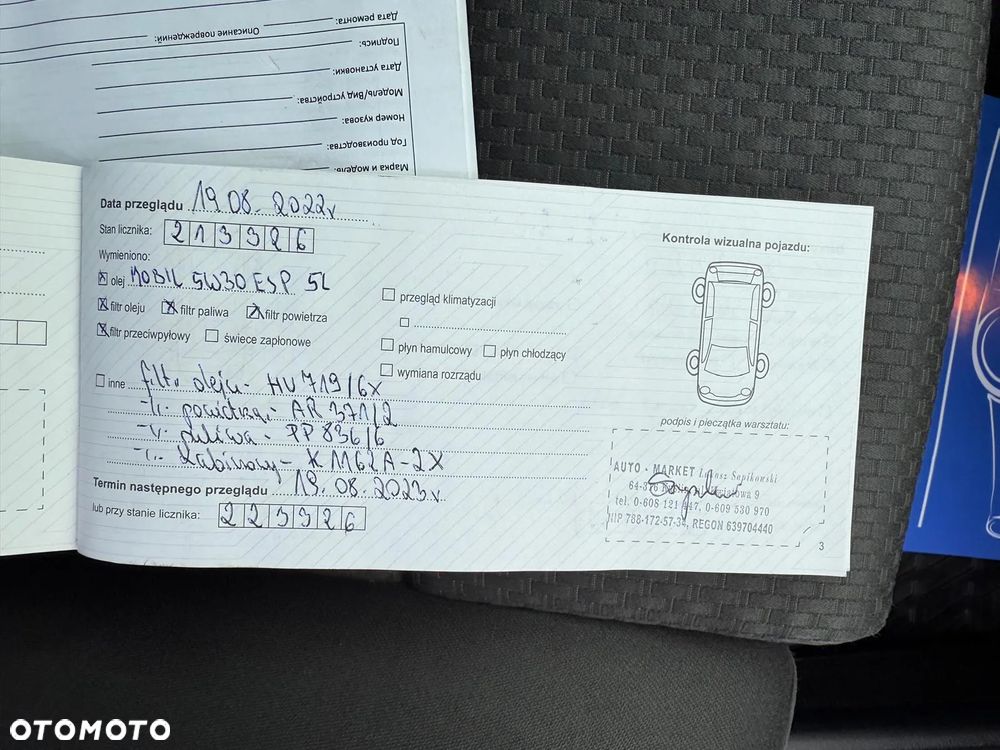 Дата ремонта:
Описание повреждений:
Подпись:
Дата установки:
Модель/Вид устройства:
Номер кузова:
Год производства:
Марка и модель:
Data przeglądu 19.08.2022r
Stan licznika: 213326
Wymieniono:
olej MOBIL 5W30 ESP 5L
filtr oleju filtr paliwa filtr powietrza
filtr przeciwpyłowy świece zapłonowe
inne filtr oleju - HU 719/6X
-||- powietrza - AR 371/2
-||- paliwa - PP 836/6
-||- kabinowy - K 1162A-2X
Termin następnego przeglądu 19.08.2023r.
lub przy stanie licznika: 223326
przegląd klimatyzacji
płyn hamulcowy płyn chłodzący
wymiana rozrządu
Kontrola wizualna pojazdu:
podpis i pieczątka warsztatu:
AUTO - MARKET Łukasz Sapikowski
64-376 9
tel. 0-608 121 447, 0-609 530 970
NIP 788-172-57-34, REGON 639704440
3
OTOMOTO